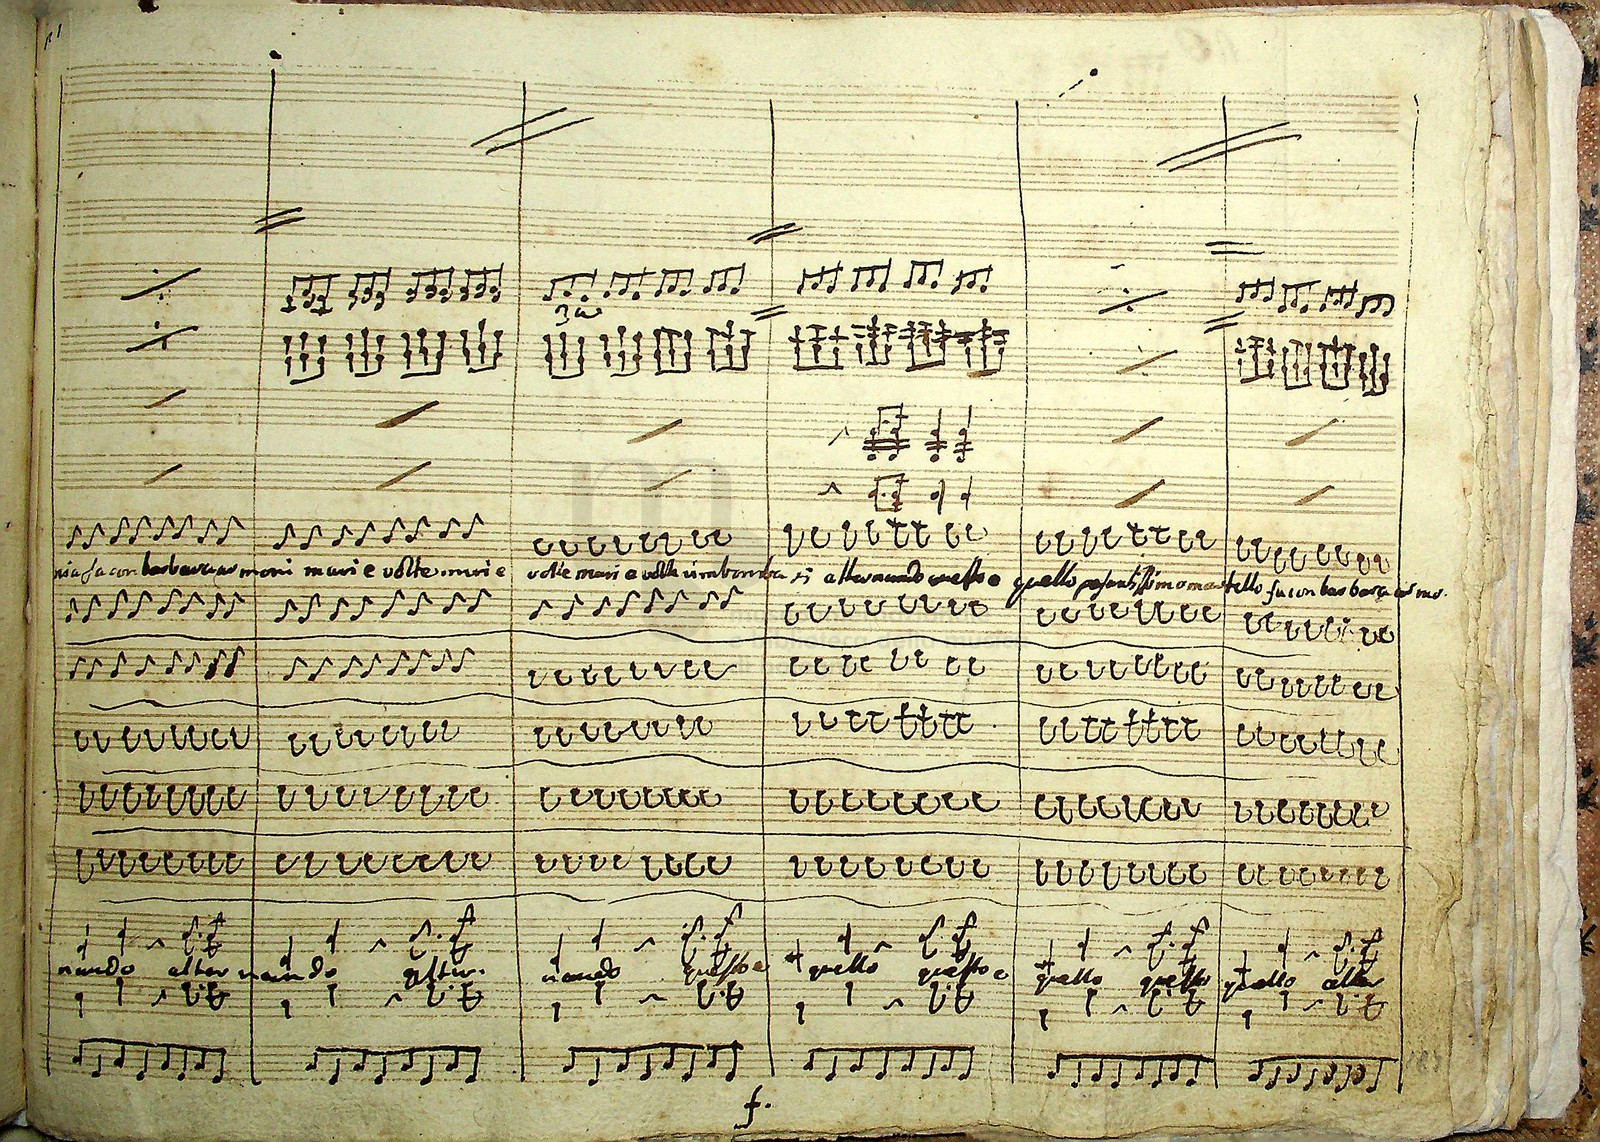 fa con barbara armoni muri e volte muri e volte muri e volte rimbombar si alternando questo e quello pesantissimo martello fa con barbara armo.
nando alter nando alter. nando questo e quello questo e quello quello quello alter
f.